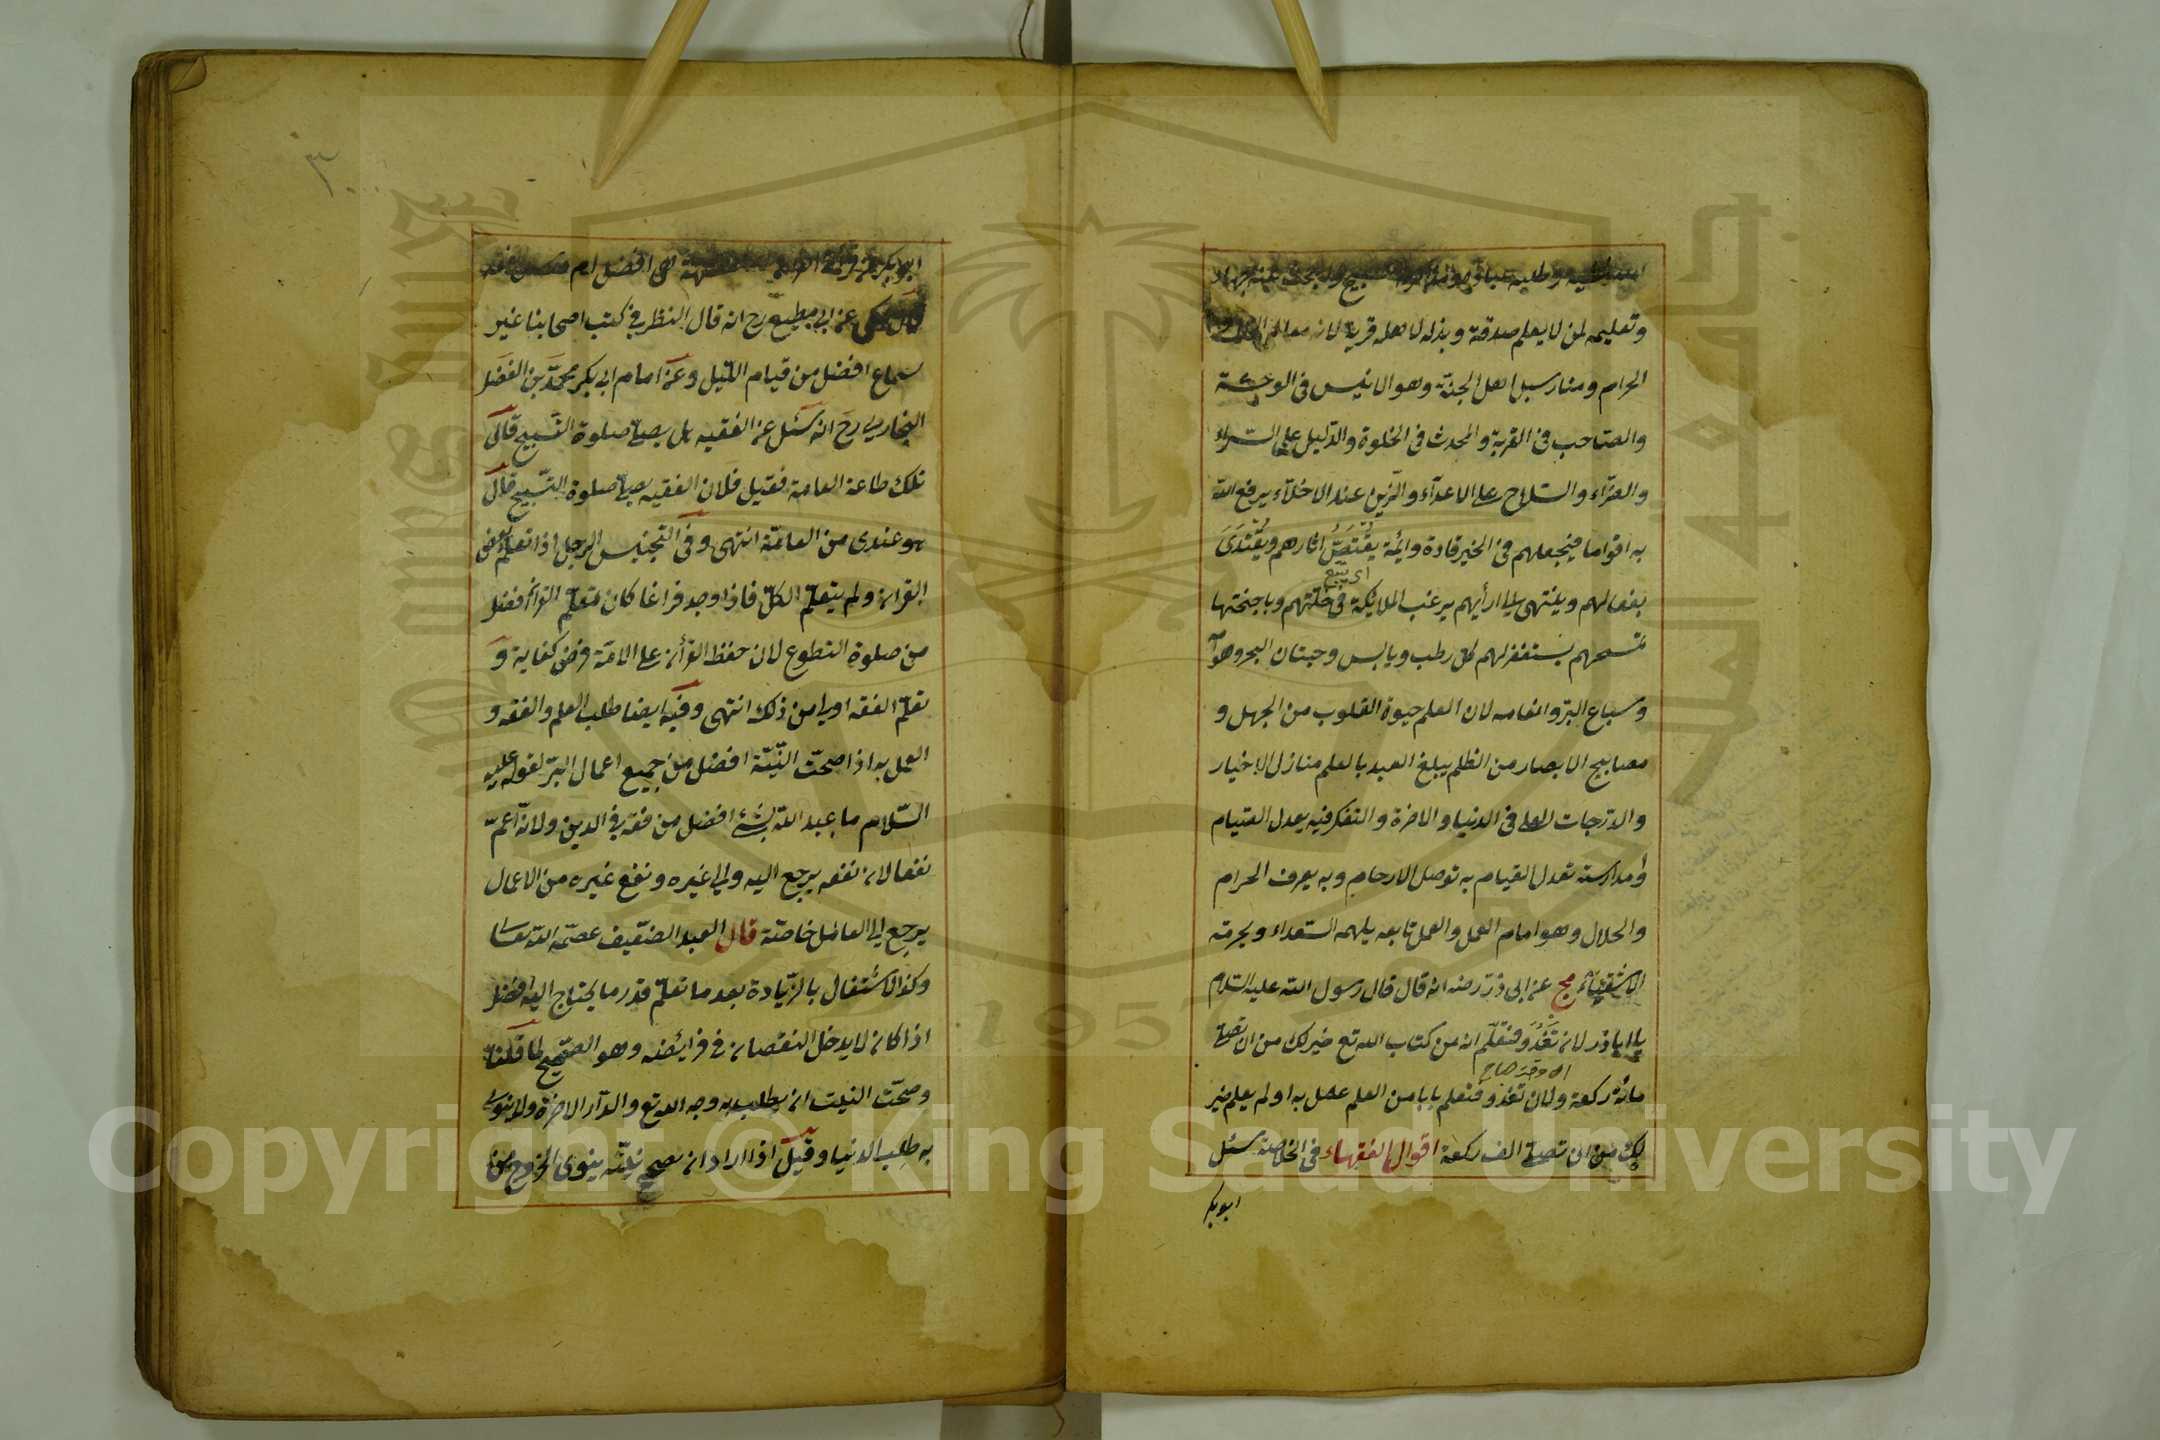 وطلبه عبادة ومذاكرته تسبيح والبحث عنه جهاد
وتعليمه لمن لا يعلم صدقة وبذله لاهله قربة لانه معالم الحلال و
الحرام ومنار سبل اهل الجنة وهو الانيس فى الوحشة
والصاحب فى الغربة والمحدث فى الخلوة والدليل على السراء
والضراء والسلاح على الاعداء والزين عند الاخلاء يرفع الله
به اقواما فيجعلهم فى الخير قادة وائمة يُقْتَصُّ اثارهم ويُقْتَدَى
اى يتبع
بفعالهم وينتهى الى ارأيهم يرغب الملايكة فى خلتهم وباجنحتها
تمسحهم يستغفر لهم كل رطب ويابس وحيتان البحر وهوا
وسباع البر وانعامه لان العلم حيوة القلوب من الجهل و
مصابيح الابصار من الظلم يبلغ العبد بالعلم منازل الاخيار
والدرجات العلى فى الدنيا والاخرة والتفكر فيه يعدل الصيام
ومدارسته تعدل القيام به توصل الارحام وبه يعرف الحرام
والحلال وهو امام العمل والعمل تابعه يلهمه السعداء ويحرمه
الاشقياء مج عن ابى ذر رضه انه قال قال رسول الله عليه السلام
يا اباذر لان تَغْدُوَ فتعلّم اية من كتاب الله تع خير لك من ان تصلى
مائة ركعة ولان تغدو فتعلم بابا من العلم عمل به او لم يعمل خير
لك من ان تصلى الف ركعة اقوال الفقهاء فى الخلاصة سئل
ابو بكر
هى افضل ام
عن ابى مطيع رح انه قال النظر فى كتب اصحابنا غير
سماع افضل من قيام الليل وعن امام ابى بكر محمد بن الفضل
البخارى رح انه سئل عن الفقيه هل يصلى صلوة التسبيح قال
تلك طاعة العامة فقيل فلان الفقيه يصلى صلوة التسبيح قال
هو عندى من العامة انتهى وفى التجنيس الرجل اذا تعلم بعض
القران ولم يتعلم الكل فاذا وجد فراغا كان تعلم القران افضل
من صلوة التطوع لان حفظ القرأن على الامة فرض كفاية و
تعلم الفقه اولى من ذلك انتهى وفيه ايضا طلب العلم والفقه و
العمل به اذا صحت النية افضل من جميع اعمال البر لقوله عليه
السلام ما عبد الله بشئ افضل من فقه فى الدين ولانه اعم
نفعا لان نفعه يرجع اليه والى غيره ونفع غيره من الاعمال
يرجع الى العامل خاصة قال العبد الضعيف عصمه الله تعالى
وكذا الاشتغال بالزيادة بعد ما تعلم قدر ما يحتاج اليه افضل
اذا كان لا يدخل النقصان فى فرايضه وهو الصحيح لما قلنا
وصحت النية ان يطلب به وجه الله تع والدار الاخرة ولا ينوى
به طلب الدنيا وقيل اذا اراد ان يصحح نيته ينوى الخروج من